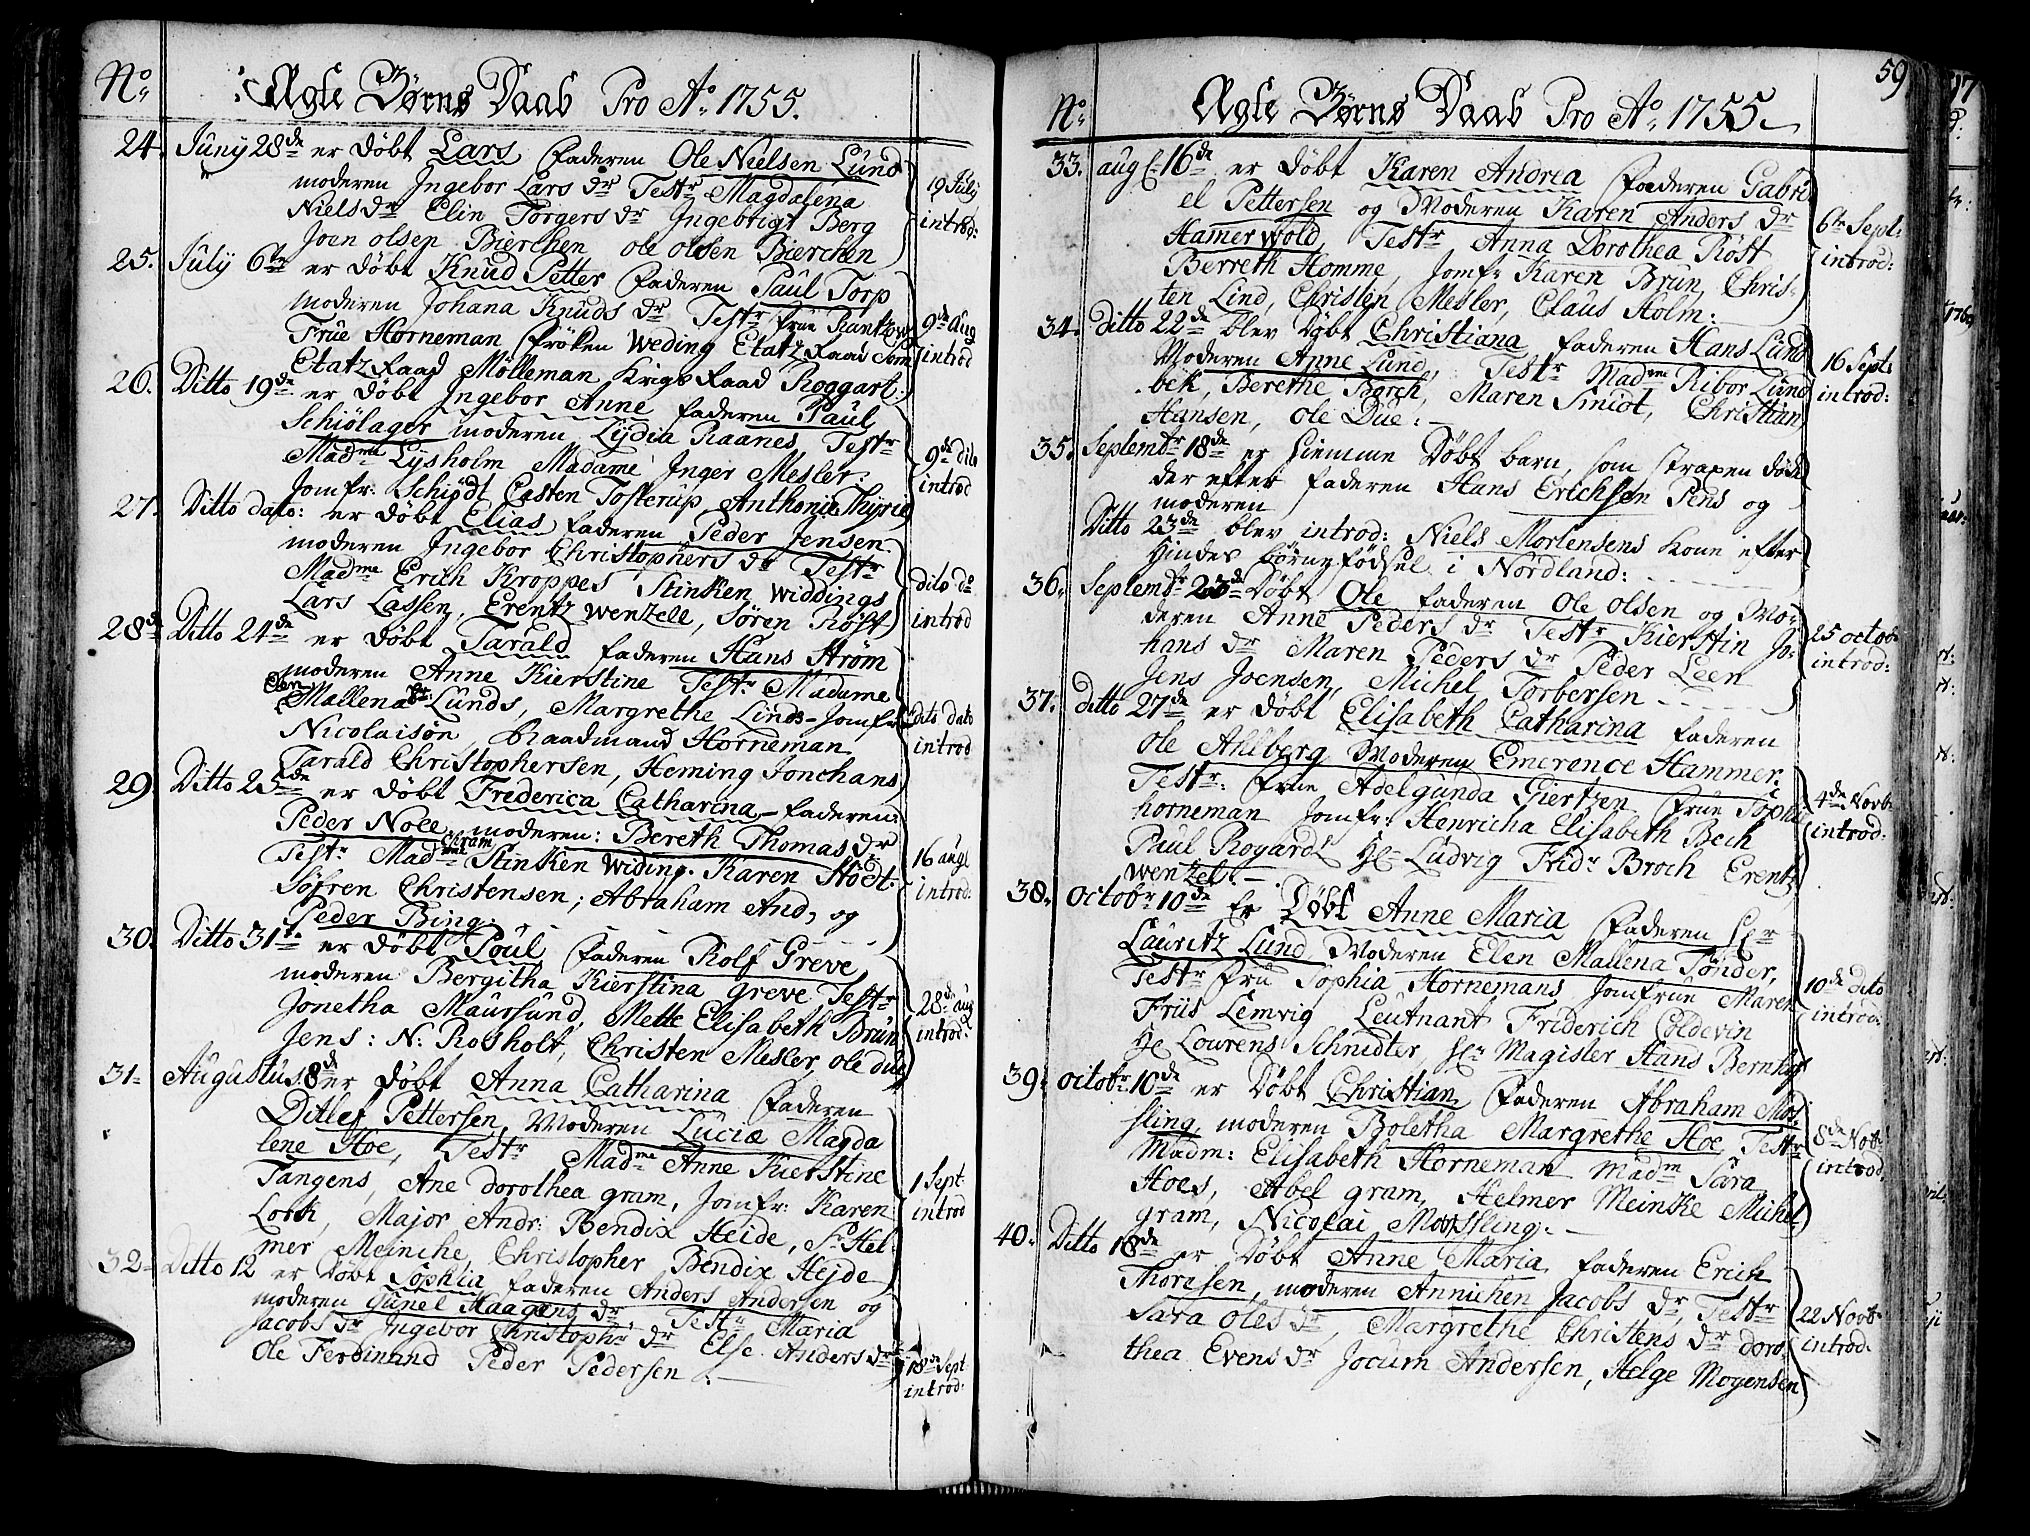 No. Ægte Børns Daab Pro Ao. 1755.
24. Juny 28de er døbt Lars faderen Ole Nielsen Lund
moderen Ingebor Lars dr Testr Magdalena
Niels dr Elin Torgers dr Ingebrigt Berg
Joen olsen Bierchen ole olsen Bierchen
19 July
introd:
25. July 6te er døbt Knud Petter faderen Paul Torp
moderen Johana Knuds dr Testr frue Rantzow
Frue Horneman frøken Weding Etatz Raad
Etatz Raad Mölleman Krigs Raad Roggart.
9de aug
introd
26. Ditto 19de er døbt Ingebor Anne faderen Paul
Schiölager moderen Lydia Raanes, Testr
Madme Lysholm Madame Inger Mesler:
Jomfr: Schiødt Casten Tosterup Anthoni Thyrie
9de dito
introd
27. Ditto dato: er døbt Elias faderen Peder Jensen
moderen Ingebor Christophers dr Testr
Madme Erich Kroppes Stinken widdings
Lars Lassen, Erentz wenzell, Sören Röst
dito do
introd
28de Ditto 24de er døbt Tarald faderen Hans Strøm
moderen Anne Kierstine Testr Madame
Elen Mallena Lunds, Margrethe Linds Jomfr
Nicolaisön, Raadmand Horneman
Tarald Christophersen, Heming Jonchans
dito dato
introd
29. Ditto 25de er døbt Frederica Catharina faderen
Peder Noll moderen: Bereth Thomas dr
Testr Madme Chram Stinken Widing. Karen Hödt.
Söfren Christensen; Abraham And, og
Peder Bing.
16 augt
introd:
30. Ditto 31te er døbt Poul faderen Rolf Greve
moderen Bergitha Kierstina Greve Testr
Jonetha Maursund, Mette Elisabeth Brun
Jens: N: Rosholt, Christen Mesler, ole due
28de aug
introd:
31. Augustus 8de er døbt Anna Catharina faderen
Ditlef Pettersen, Moderen Lucia Magda
lene Hoe, Testr Madme Anne Kierstine
Tangens, Ane dorothea gram, Jomfr: Karen
Lork, Major Andr: Bendix Heide, Sr Hel-
mer Meinche, Christopher Bendix Hejde
1 Sept:
introd
32. Ditto 12 er døbt Sophia faderen Anders Andersen og
moderen Gunel Haagens dr, Testr Maria
Jacobs dr Ingebor Christophr dr Else Anders dr
Ole Ferdinand Peder Pedersen.
18de Sept
introd:
59
No. Ægte Børns Daab Pro Ao. 1755.
33. aug 16de er døbt Karen Andrea faderen Gabri
el Pettersen og Moderen Karen Anders dr
Hamerwold, Testr Anna Dorothea Röst
Berreth Homme, Jomfr Karen Brun, Chris-
ten Lind, Christen Mesler, Claus Holm:
6te Sept:
introd:
34. ditto 22de blev Døbt Christiana faderen Hans Lund
Moderen Anne Lund, Testr Madme Ribor Lund
bek, Berethe Borch, Maren Smidt, Christian
Hansen, ole Due:
16 Sept:
introd:
35. Septembr 18de er hiemme Døbt barn, som straxen døde
der efter faderen Hans Erichsen Pens og
moderen
Ditto 23de blev introd: Niels Mortensens Kone efter
hindes Børnefødsel i Nordland:
36. Septembr 23de Døbt Ole faderen Ole olsen og Mo-
deren Anne Peders dr Testr Kierstin Jo-
hans dr Maren Peders dr Peder Leen
Jens Joensen, Michel Torbersen
25 octob
introd:
37. ditto 27de er døbt Elisabeth Catharina faderen
ole Ahlberg Moderen Emerence Hammer.
Testr: frue Adelgunda Giertzen frue Sophia
horneman Jomfr: Henricha Elisabeth Bech
Paul Rogard Hr Ludvig Fridr Broch Erentz
wenzel.
4de Novb
introd:
38. Octobr 10de Er Døbt Anne Maria faderen Hr
Lauritz Lund Moderen Elen Mallena Tönder,
Testr fru Sophia Hornemans Jomfrue Maren
Friis Lemvig Leutnant Friderich Coldevin
Hr Lourens Schnidter, Hr Magister Hans Bernhof
10de dito
introd:
39. octobr 10de er Døbt Christian faderen Abraham Mös
sling, moderen Boletha Margrethe Hoe, Testr
Madm: Elisabeth Horneman Madm Sara
Hoes, Abel gram, Helmer Meinke Michel
gram, Nicolai Mössling.
8de Novb:
introd
40. Ditto 18de er Døbt Anne Maria faderen Erich
Thoresen, moderen Annichen Jacobs dr, Testr
Sara Oles dr, Margrethe Christens dr doro
thea Evens dr Jocum Andersen, Helge Mogensen
22 Novb
introd: